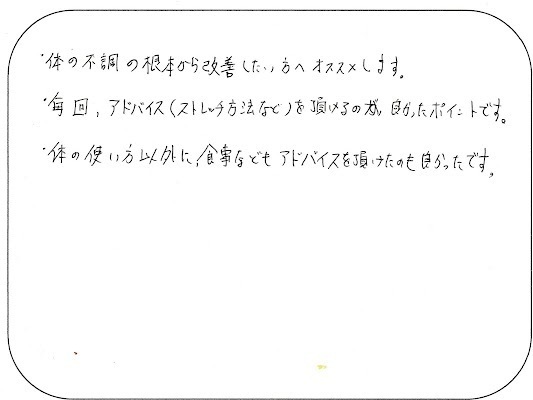 ・体の不調の根本から改善したい方へオススメします。
・毎回、アドバイス(ストレッチ方法など)を頂けるのが、良かったポイントです。
・体の使い方以外に、食事などもアドバイスを頂けたのも良かったです。